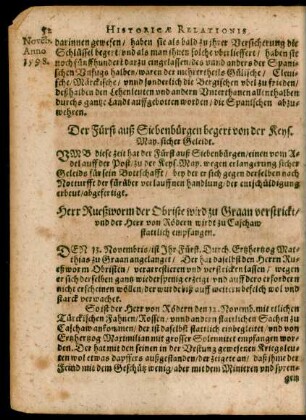 52 HISTORICÆ RELATIONIS.
Novēb. darinnen gewesen / haben sie als bald zu jhrer Versicherung die
Anno Schlüssel begert: vnd als man jhnen solche vberlieffert / haben sie
1598. noch fünffhundert darzu eingelassen / des vnd anders der Spani-
schen Vnfugs halben / waren der mehrertheils Gülische / Cleui-
sche / Märckische / vnnd sonderlich die Bergischen vbel zu frieden /
deßhalben den Lehenleuten vnd andern Vnterthanen allenthalben
durchs gantze Landt auffgebotten worden / die Spanischen abzu
wehren.
Der Fürst auß Siebenbürgen begert von der Keys.
May. sicher Geleidt.
VMB diese zeit hat der Fürst auß Siebenbürgen / einen vom A-
del auff der Post zu der Keys. May. wegen erlangerung sicher
Geleids für sein Bottschafft / bey der er sich gegen derselben nach
Notturfft der fürüber verlauffnen handlung / der entschüldigung
erbeut / abgefertigt.
Herr Rueßworm der Obriste wird zu Graan verstrickt /
vnd der Herr von Rödern wirdt zu Caschaw
stattlich empfangen.
DEN 13. Novembris / ist Ihr Fürst. Durch. Ertzhertzog Mat-
thias zu Graan angelangt / Der hat daselbst den Herrn Rues-
ßworm Obristen / verarrestieren vnd verstricken lassen / wegen
er sich derselben gantz widerspenig erzeigt / vnd auff dero erfordern
nicht erscheinen wöllen / der wurde biß auff weitern bescheid wol vnd
starck verwachet.
So ist der Herr von Rödern den 12. Novemb. mit etlichen
Türckischen Fahnen / Rossen / vnnd andern stattlichen Sachen zu
Caschaw ankomen / der ist daselbst stattlich einbegleitet / vnd von
Ertzhertzog Maximilian mit grosser Solennitet empfangen wor-
den. Der hat mit den seinen in der Vestung gewesenen Kriegsleu-
ten wol etwas dapffers außgestanden / der zeiget an / daß jhme der
Feind mit dem Geschütz wenig / aber mit dem Miniren vnd spren-
gen